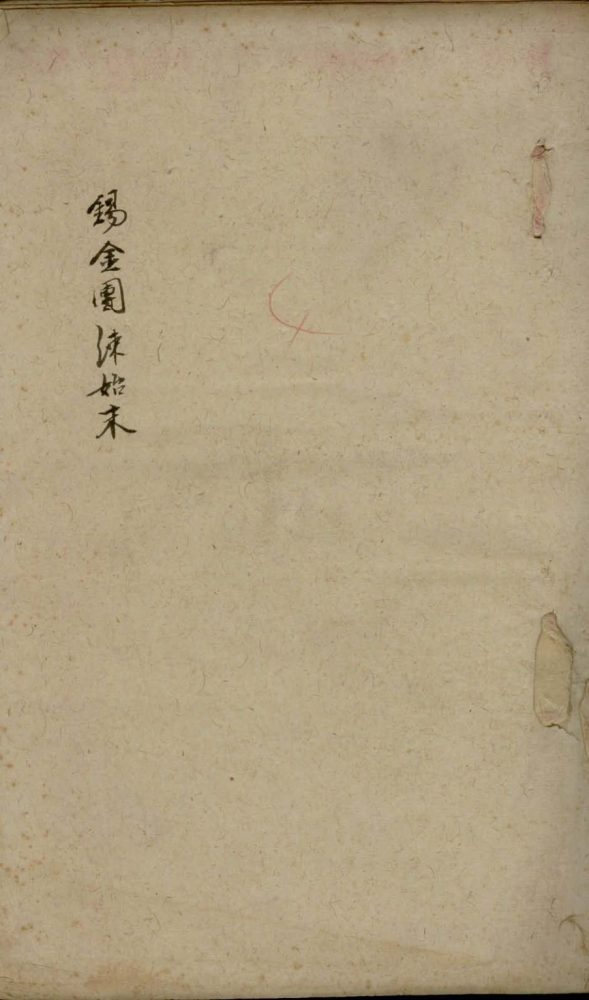 錫金團練始末